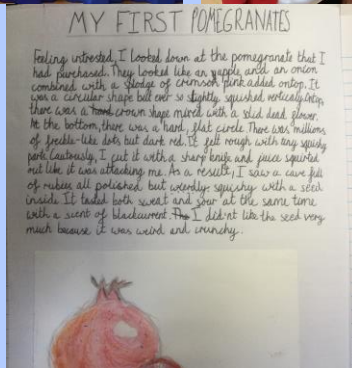 MY FIRST POMEGRANATES
Feeling intrested, I looked down at the pomegranate that I
had purchased. They looked like an yapple and an onion
combined with a splodge of crimson pink added ontop. It
was a circular shape but ever so slightly squished vertically. Ontop,
there was a hard crown shape mixed with a solid dead flower.
At the bottom, there was a hard, flat circle. There was millions
of freckle-like dots but dark red. It felt rough with tiny squishy
parts. Cautiously, I cut it with a sharp knife and juice squirted
out like it was attacking me. As a result, I saw a cave full
of rubies all polished but weirdly squishy with a seed
inside. It tasted both sweat and sour at the same time
with a scent of blackcurrent. The I did'nt like the seed very
much because it was weird and crunchy.